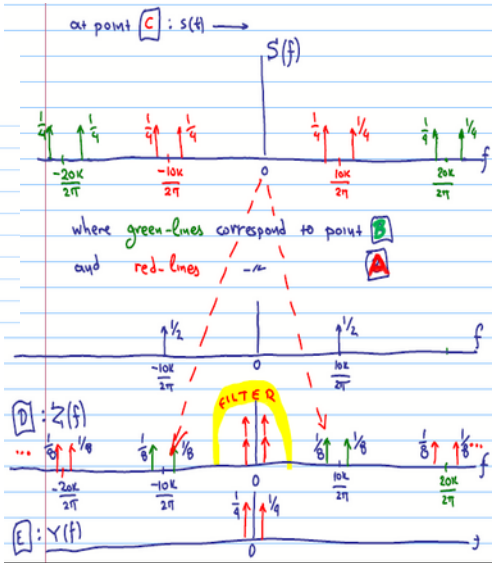 at point C : s(t) →
S(f)
1/4 1/4 1/4 1/4 1/4 1/4 1/4 1/4
-20K/2π -10K/2π 0 10K/2π 20K/2π f
where green-lines correspond to point B
and red-lines -〃- A
1/2 1/2 f
-10K/2π 0 10K/2π
FILTER
D : Z(f)
... 1/8 1/8 1/8 1/8 1/8 1/8 1/8 1/8 ...
-20K/2π -10K/2π 0 10K/2π 20K/2π f
1/4 1/4
E : Y(f)
0 f